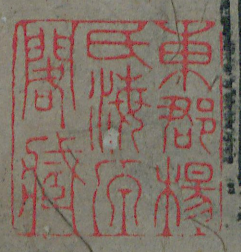 東郡楊
氏海源
閣藏